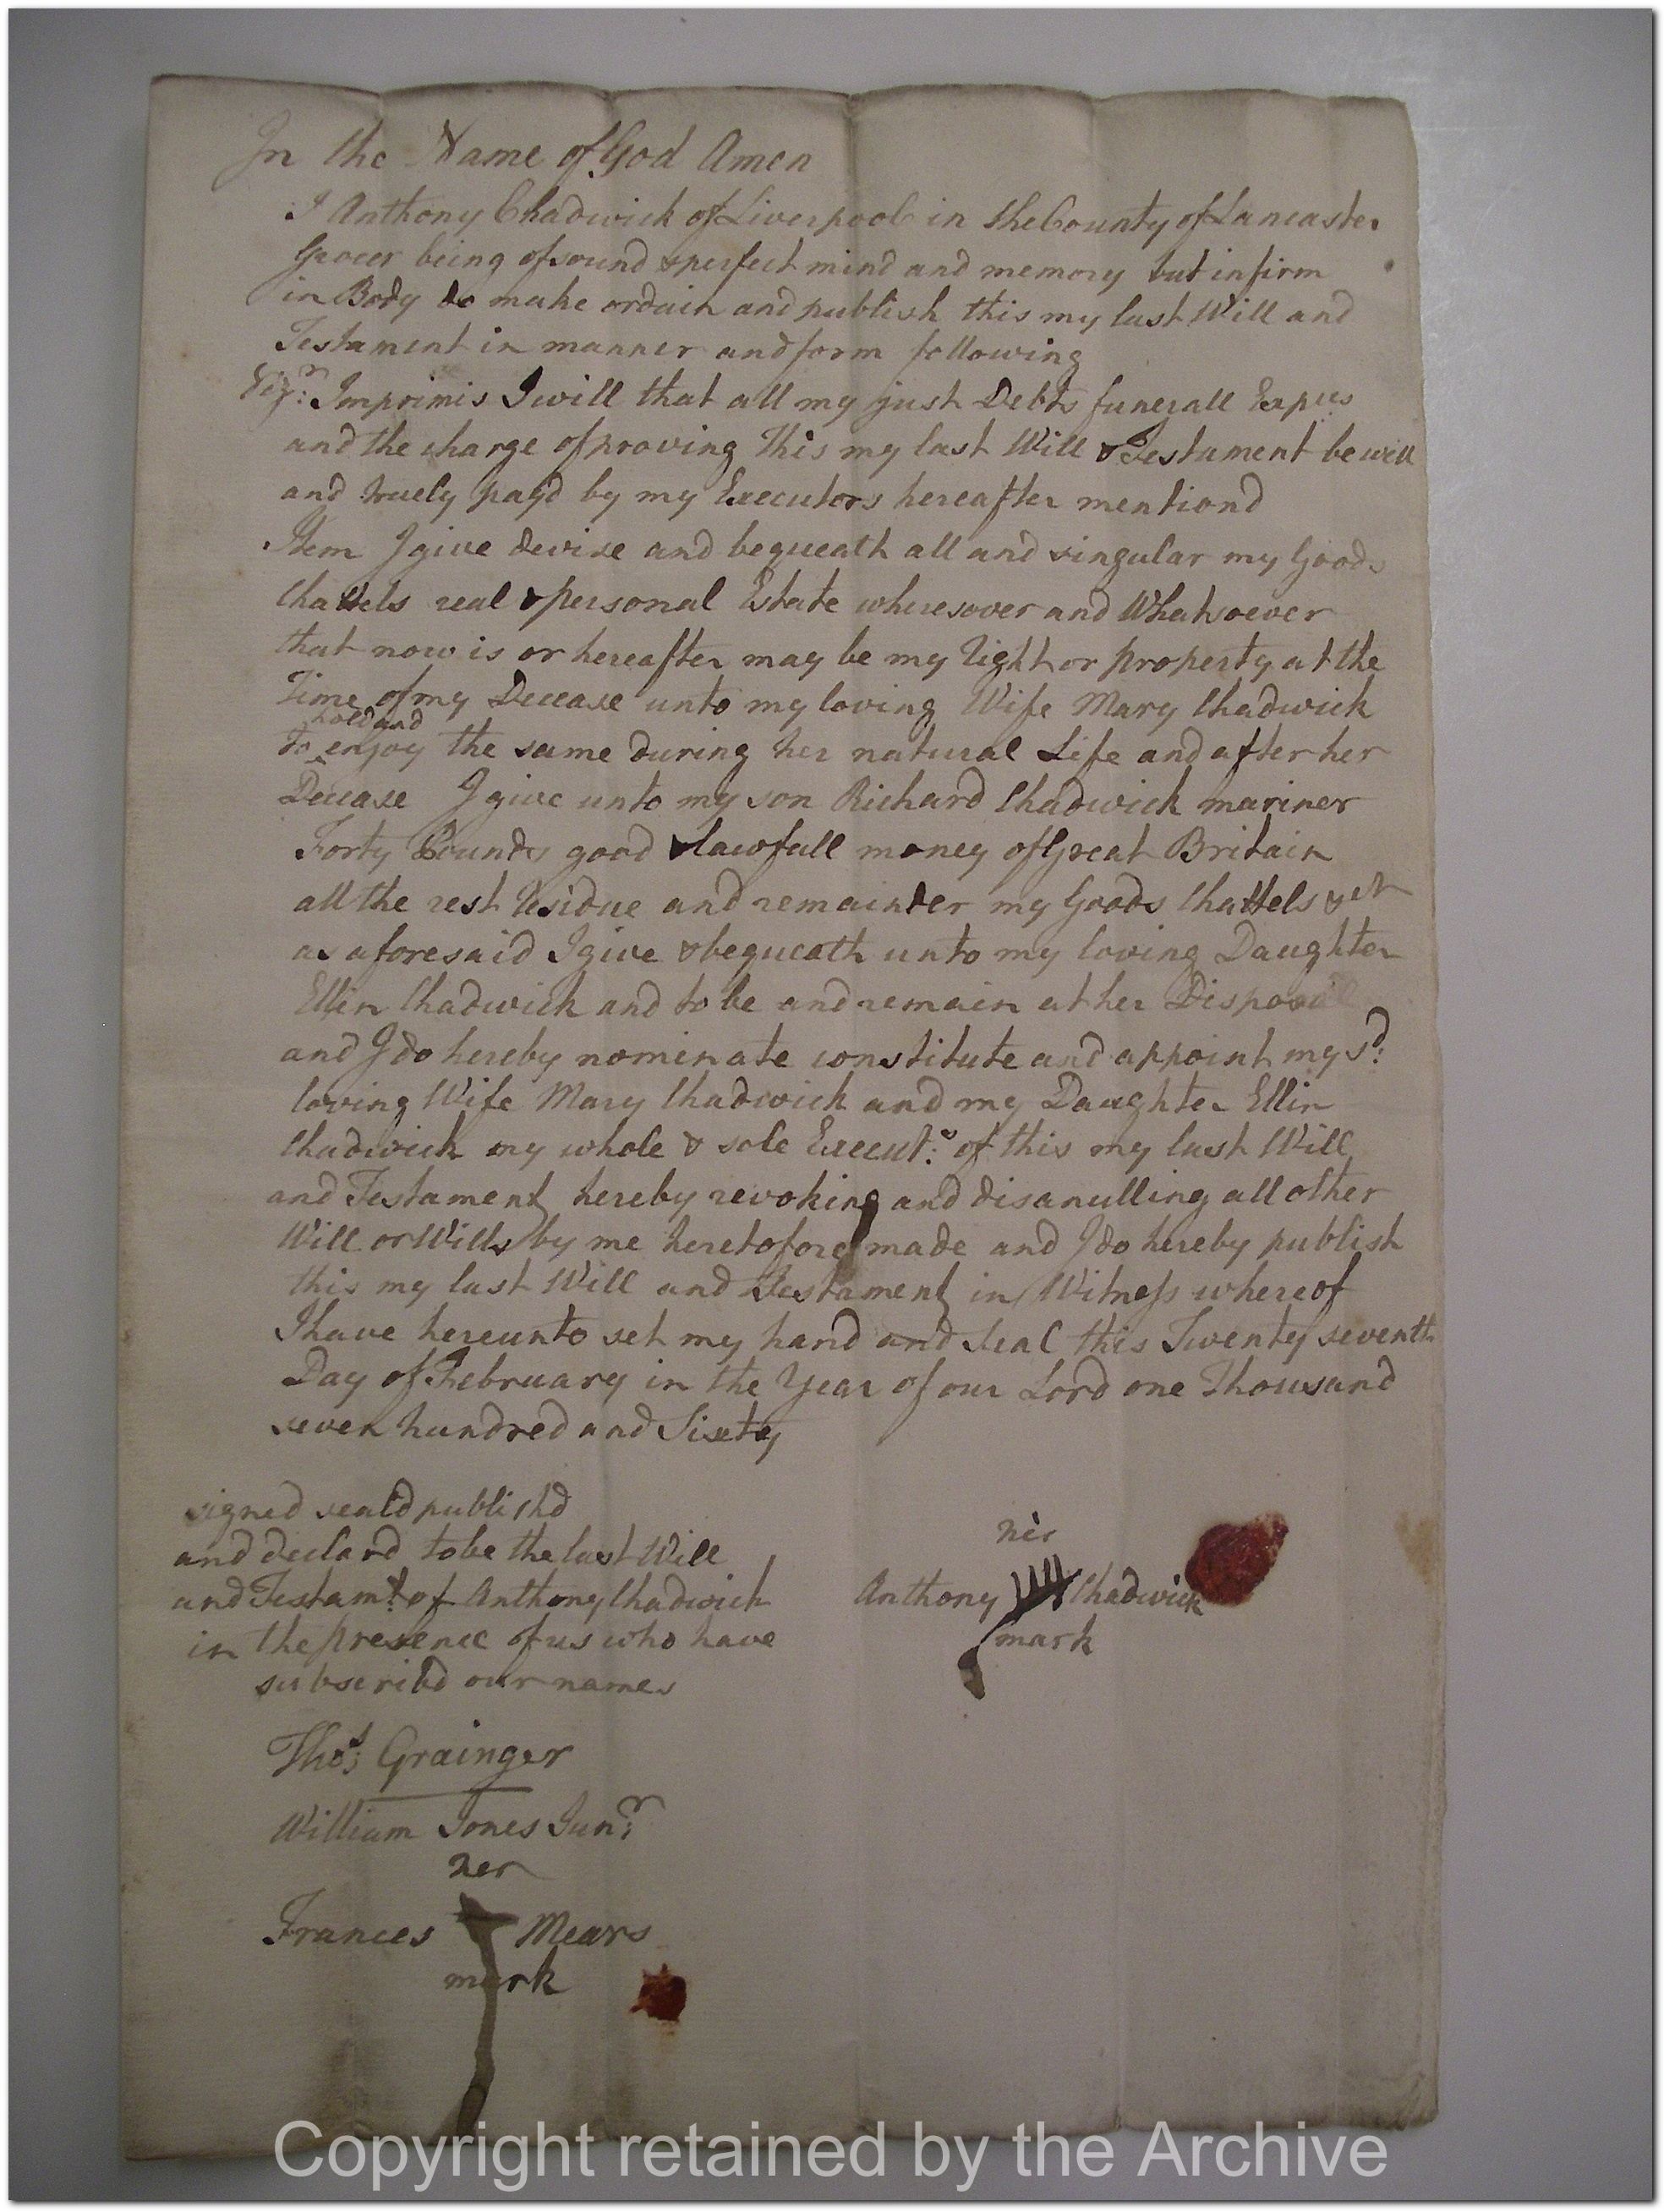 In the Name of God Amen
I Anthony Chadwick of Liverpool in the County of Lancaster
Grocer being of sound & perfect mind and memory but infirm
in Body do make ordain and publish this my last Will and
Testament in manner and form following
Vizr: Imprimis I will that all my just Debts funerall Expces
and the charge of proving this my last Will & Testament be well
and truely payd by my Executors hereafter mentiond
Item I give devise and bequeath all and singular my Goods
Chattels real & personal Estate wheresover and Whatsoever
that now is or hereafter may be my right or property at the
Time of my Decease unto my loving Wife Mary Chadwick
hold and
to enjoy the same during her natural Life and after her
Decease I give unto my son Richard Chadwick mariner
Forty Pounds good & lawfull money of Great Britain
all the rest residue and remainder my Goods Chattels &cr
as aforesaid I give & bequeath unto my loving Daughter
Ellin Chadwick and to be and remain at her Disposal
and I do hereby nominate constitute and appoint my sd:
loving Wife Mary Chadwick and my Daughter Ellin
Chadwick my whole & sole Execut:s of this my last Will
and Testament hereby revoking and disanulling all other
Will or Wills by me heretofore made and I do hereby publish
this my last Will and Testament in Witness whereof
I have hereunto set my hand and seal this Twenty seventh
Day of February in the Year of our Lord one Thousand
seven hundred and Sixty
signed seald publishd
and declard to be the last Will
and Testamt: of Anthony Chadwick
in the presence of us who have
subscribd our names
his
Anthony Chadwick
mark
Thos: Grainger
William Jones Junr:
her
Frances Mears
mark
Copyright retained by the Archive